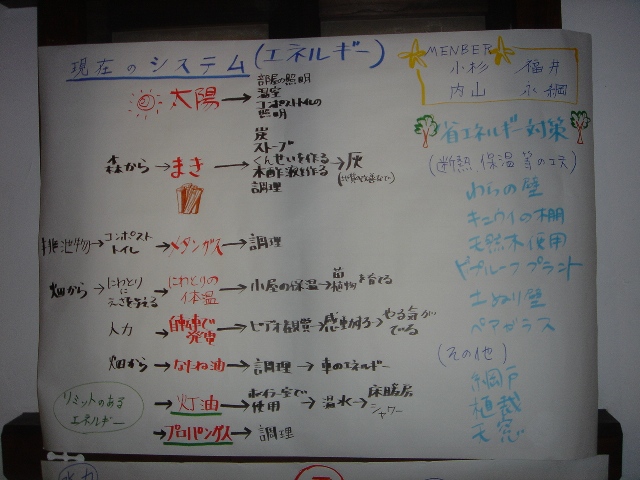 現在のシステム(エネルギー)
MENBER
小杉 福井
内山 永綱
太陽→部屋の照明
温室
コンポストトイレの
照明
森から→まき→炭
ストーブ
くんせいを作る
木酢液を作る
調理
→灰
排泄物→コンポスト
トイレ
→メタンガス→調理
畑から→にわとり
にえさを与える
→にわとりの
体温
→小屋の保温→苗
植物を育てる
人力→自転車で
発電
→ビデオ観賞→感動する→やる気が
でる
畑から→なたね油→調理→車のエネルギー
リミットのある
エネルギー
→灯油→ボイラー室で
使用
→温水→床暖房
シャワー
→プロパンガス→調理
省エネルギー対策
(断熱、保温等の工夫)
わらの壁
キュウイの棚
天然木使用
ビオルーフプラント
土ぬり壁
ペアガラス
(その他)
網戸
植栽
天窓